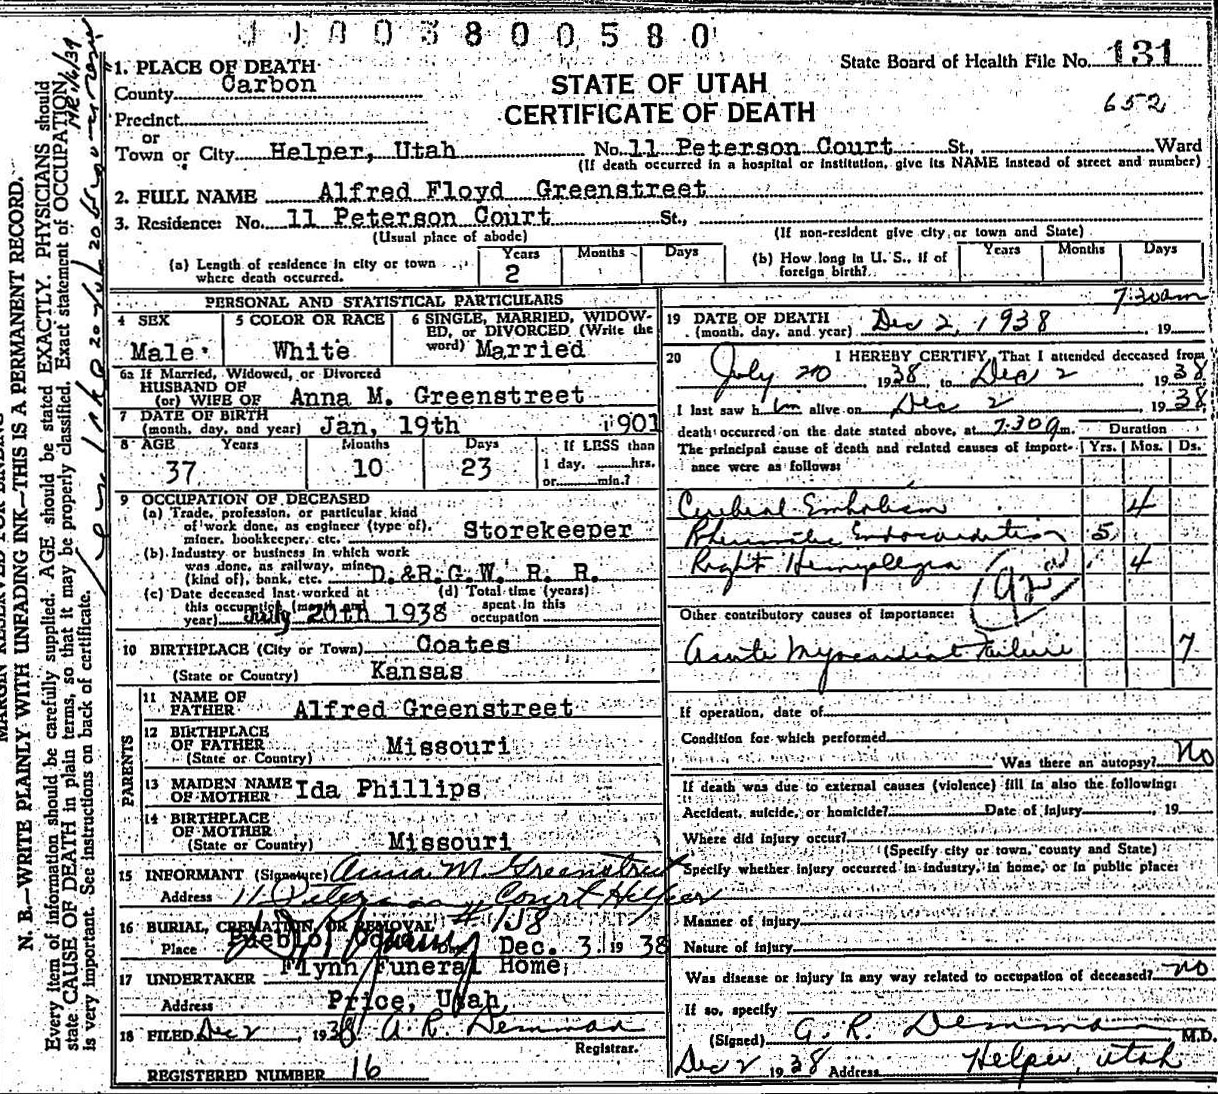 1100380 0580
State Board of Health File No. 131
652
1. PLACE OF DEATH
County Carbon
STATE OF UTAH
CERTIFICATE OF DEATH
Precinct
or
Town or City Helper, Utah No. 11 Peterson Court St., Ward
(If death occurred in a hospital or institution, give its NAME instead of street and number)
2. FULL NAME Alfred Floyd Greenstreet
3. Residence: No. 11 Peterson Court St.,
(Usual place of abode) (If non-resident give city or town and State)
(a) Length of residence in city or town where death occurred. Years 2 Months Days
(b) How long in U. S., if of foreign birth? Years Months Days
PERSONAL AND STATISTICAL PARTICULARS
4 SEX Male
5 COLOR OR RACE White
6 SINGLE, MARRIED, WIDOWED, or DIVORCED (Write the word) Married
6a If Married, Widowed, or Divorced
HUSBAND OF
(or) WIFE OF Anna M. Greenstreet
7 DATE OF BIRTH
(month, day, and year) Jan, 19th 1901
8 AGE Years 37 Months 10 Days 23 If LESS than
1 day, hrs.
or min.?
9 OCCUPATION OF DECEASED
(a) Trade, profession, or particular kind
of work done, as engineer (type of),
miner, bookkeeper, etc. Storekeeper
(b) Industry or business in which work
was done, as railway, mine
(kind of), bank, etc. D.&R.G.W. R. R.
(c) Date deceased last worked at
this occupation (month and
year) July 20th 1938
(d) Total time (years)
spent in this
occupation
10 BIRTHPLACE (City or Town) Coates
(State or Country) Kansas
PARENTS
11 NAME OF
FATHER Alfred Greenstreet
12 BIRTHPLACE
OF FATHER Missouri
(State or Country)
13 MAIDEN NAME
OF MOTHER Ida Phillips
14 BIRTHPLACE
OF MOTHER
(State or Country) Missouri
15 INFORMANT (Signature) Anna M. Greenstreet
Address 11 Peterson Court Helper
16 BURIAL, CREMATION OR REMOVAL
Place Pueblo, Dec. 3, 1938
17 UNDERTAKER Flynn Funeral Home,
Address Price, Utah,
18 FILED Dec 2, 1938 A. R. Demman
Registrar.
REGISTERED NUMBER 16
7:30am
19 DATE OF DEATH
(month, day, and year) Dec 2, 1938 19
20 I HEREBY CERTIFY, That I attended deceased from
July 20, 1938, to Dec 2, 1938
I last saw him alive on Dec 2, 1938,
death occurred on the date stated above, at 7:30 a.m. Duration
The principal cause of death and related causes of importance were as follows: Yrs. Mos. Ds.
Cerebral Embolism 4
Rheumatic Endocarditis 5
Right Hemiplegia 4
Other contributory causes of importance:
Acute Myocardial Failure 7
If operation, date of
Condition for which performed
Was there an autopsy? No
If death was due to external causes (violence) fill in also the following:
Accident, suicide, or homicide? Date of injury, 19
Where did injury occur?
(Specify city or town, county and State)
Specify whether injury occurred in industry, in home, or in public place:
Manner of injury
Nature of injury
Was disease or injury in any way related to occupation of deceased? no
If so, specify
(Signed) A. R. Demman M.D.
Dec 2 1938 Address Helper, Utah
N. B.—WRITE PLAINLY WITH UNFADING INK—THIS IS A PERMANENT RECORD.
Every item of information should be carefully supplied. AGE should be stated EXACTLY. PHYSICIANS should
state CAUSE OF DEATH in plain terms, so that it may be properly classified. Exact statement of OCCUPATION
is very important. See instructions on back of certificate.